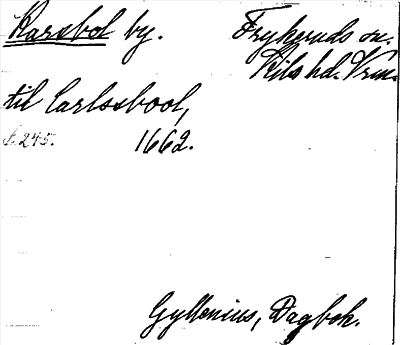 Karsbol by. Frykeruds sn.
Kils hd. Vrm.
til Carlssbool,
s. 245. 1662.
Gyllenius, Dagbok.